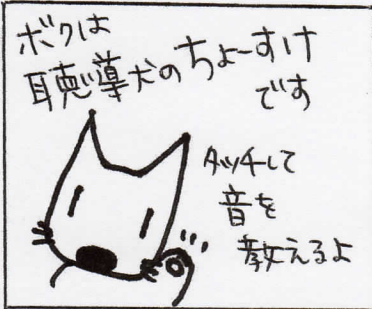 ボクは
聴導犬のちょーすけ
です
タッチして
音を
教えるよ